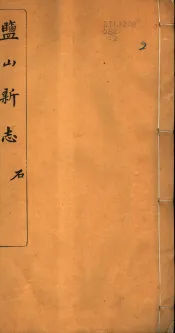 鹽山新志
石
2